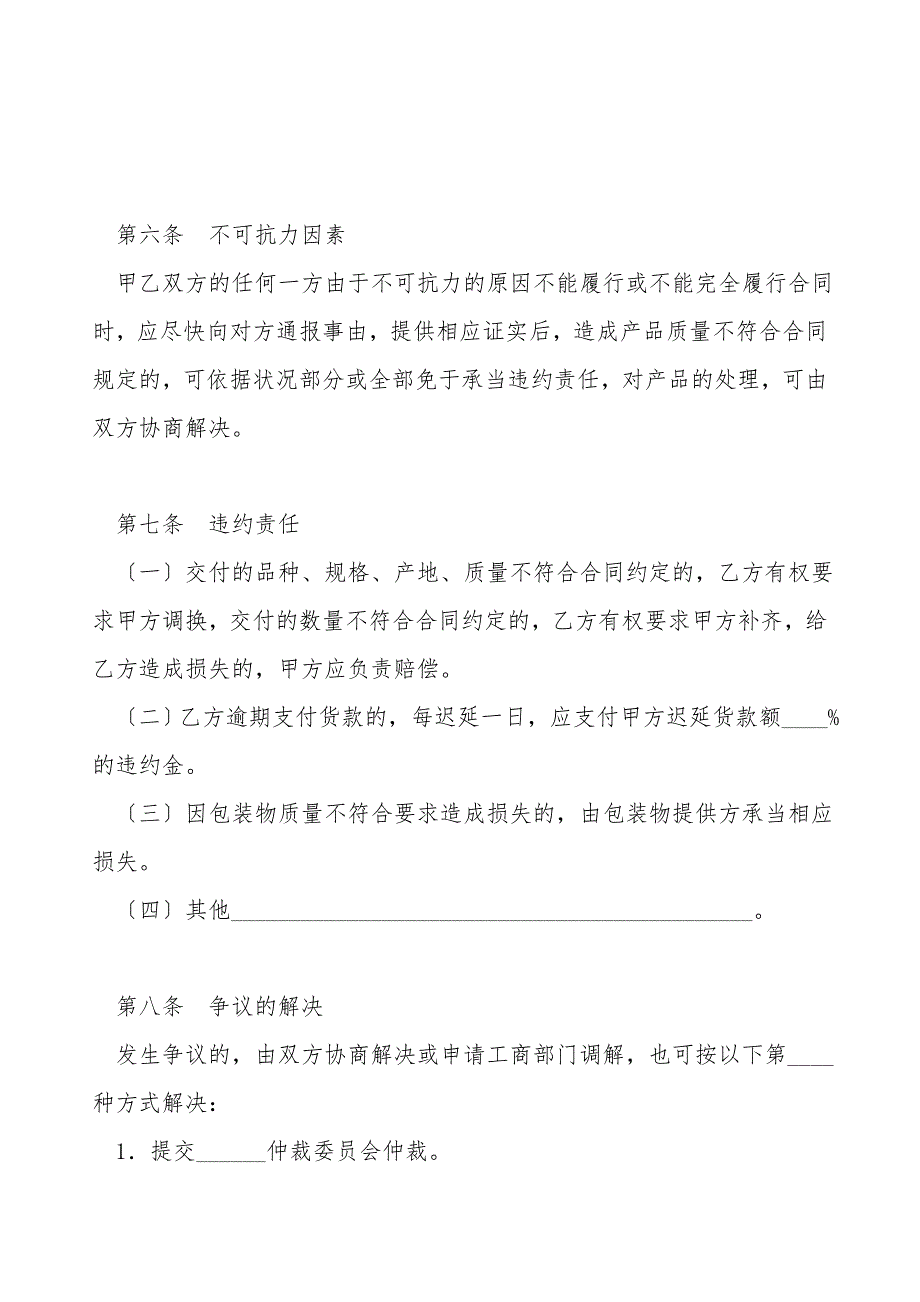 第六条　不可抗力因素
甲乙双方的任何一方由于不可抗力的原因不能履行或不能完全履行合同
时，应尽快向对方通报事由，提供相应证实后，造成产品质量不符合合同
规定的，可依据状况部分或全部免于承当违约责任，对产品的处理，可由
双方协商解决。
第七条　违约责任
〔一〕交付的品种、规格、产地、质量不符合合同约定的，乙方有权要
求甲方调换，交付的数量不符合合同约定的，乙方有权要求甲方补齐，给
乙方造成损失的，甲方应负责赔偿。
〔二〕乙方逾期支付货款的，每迟延一日，应支付甲方迟延货款额____%
的违约金。
〔三〕因包装物质量不符合要求造成损失的，由包装物提供方承当相应
损失。
〔四〕其他_____________________________________________。
第八条　争议的解决
发生争议的，由双方协商解决或申请工商部门调解，也可按以下第____
种方式解决：
1．提交______仲裁委员会仲裁。